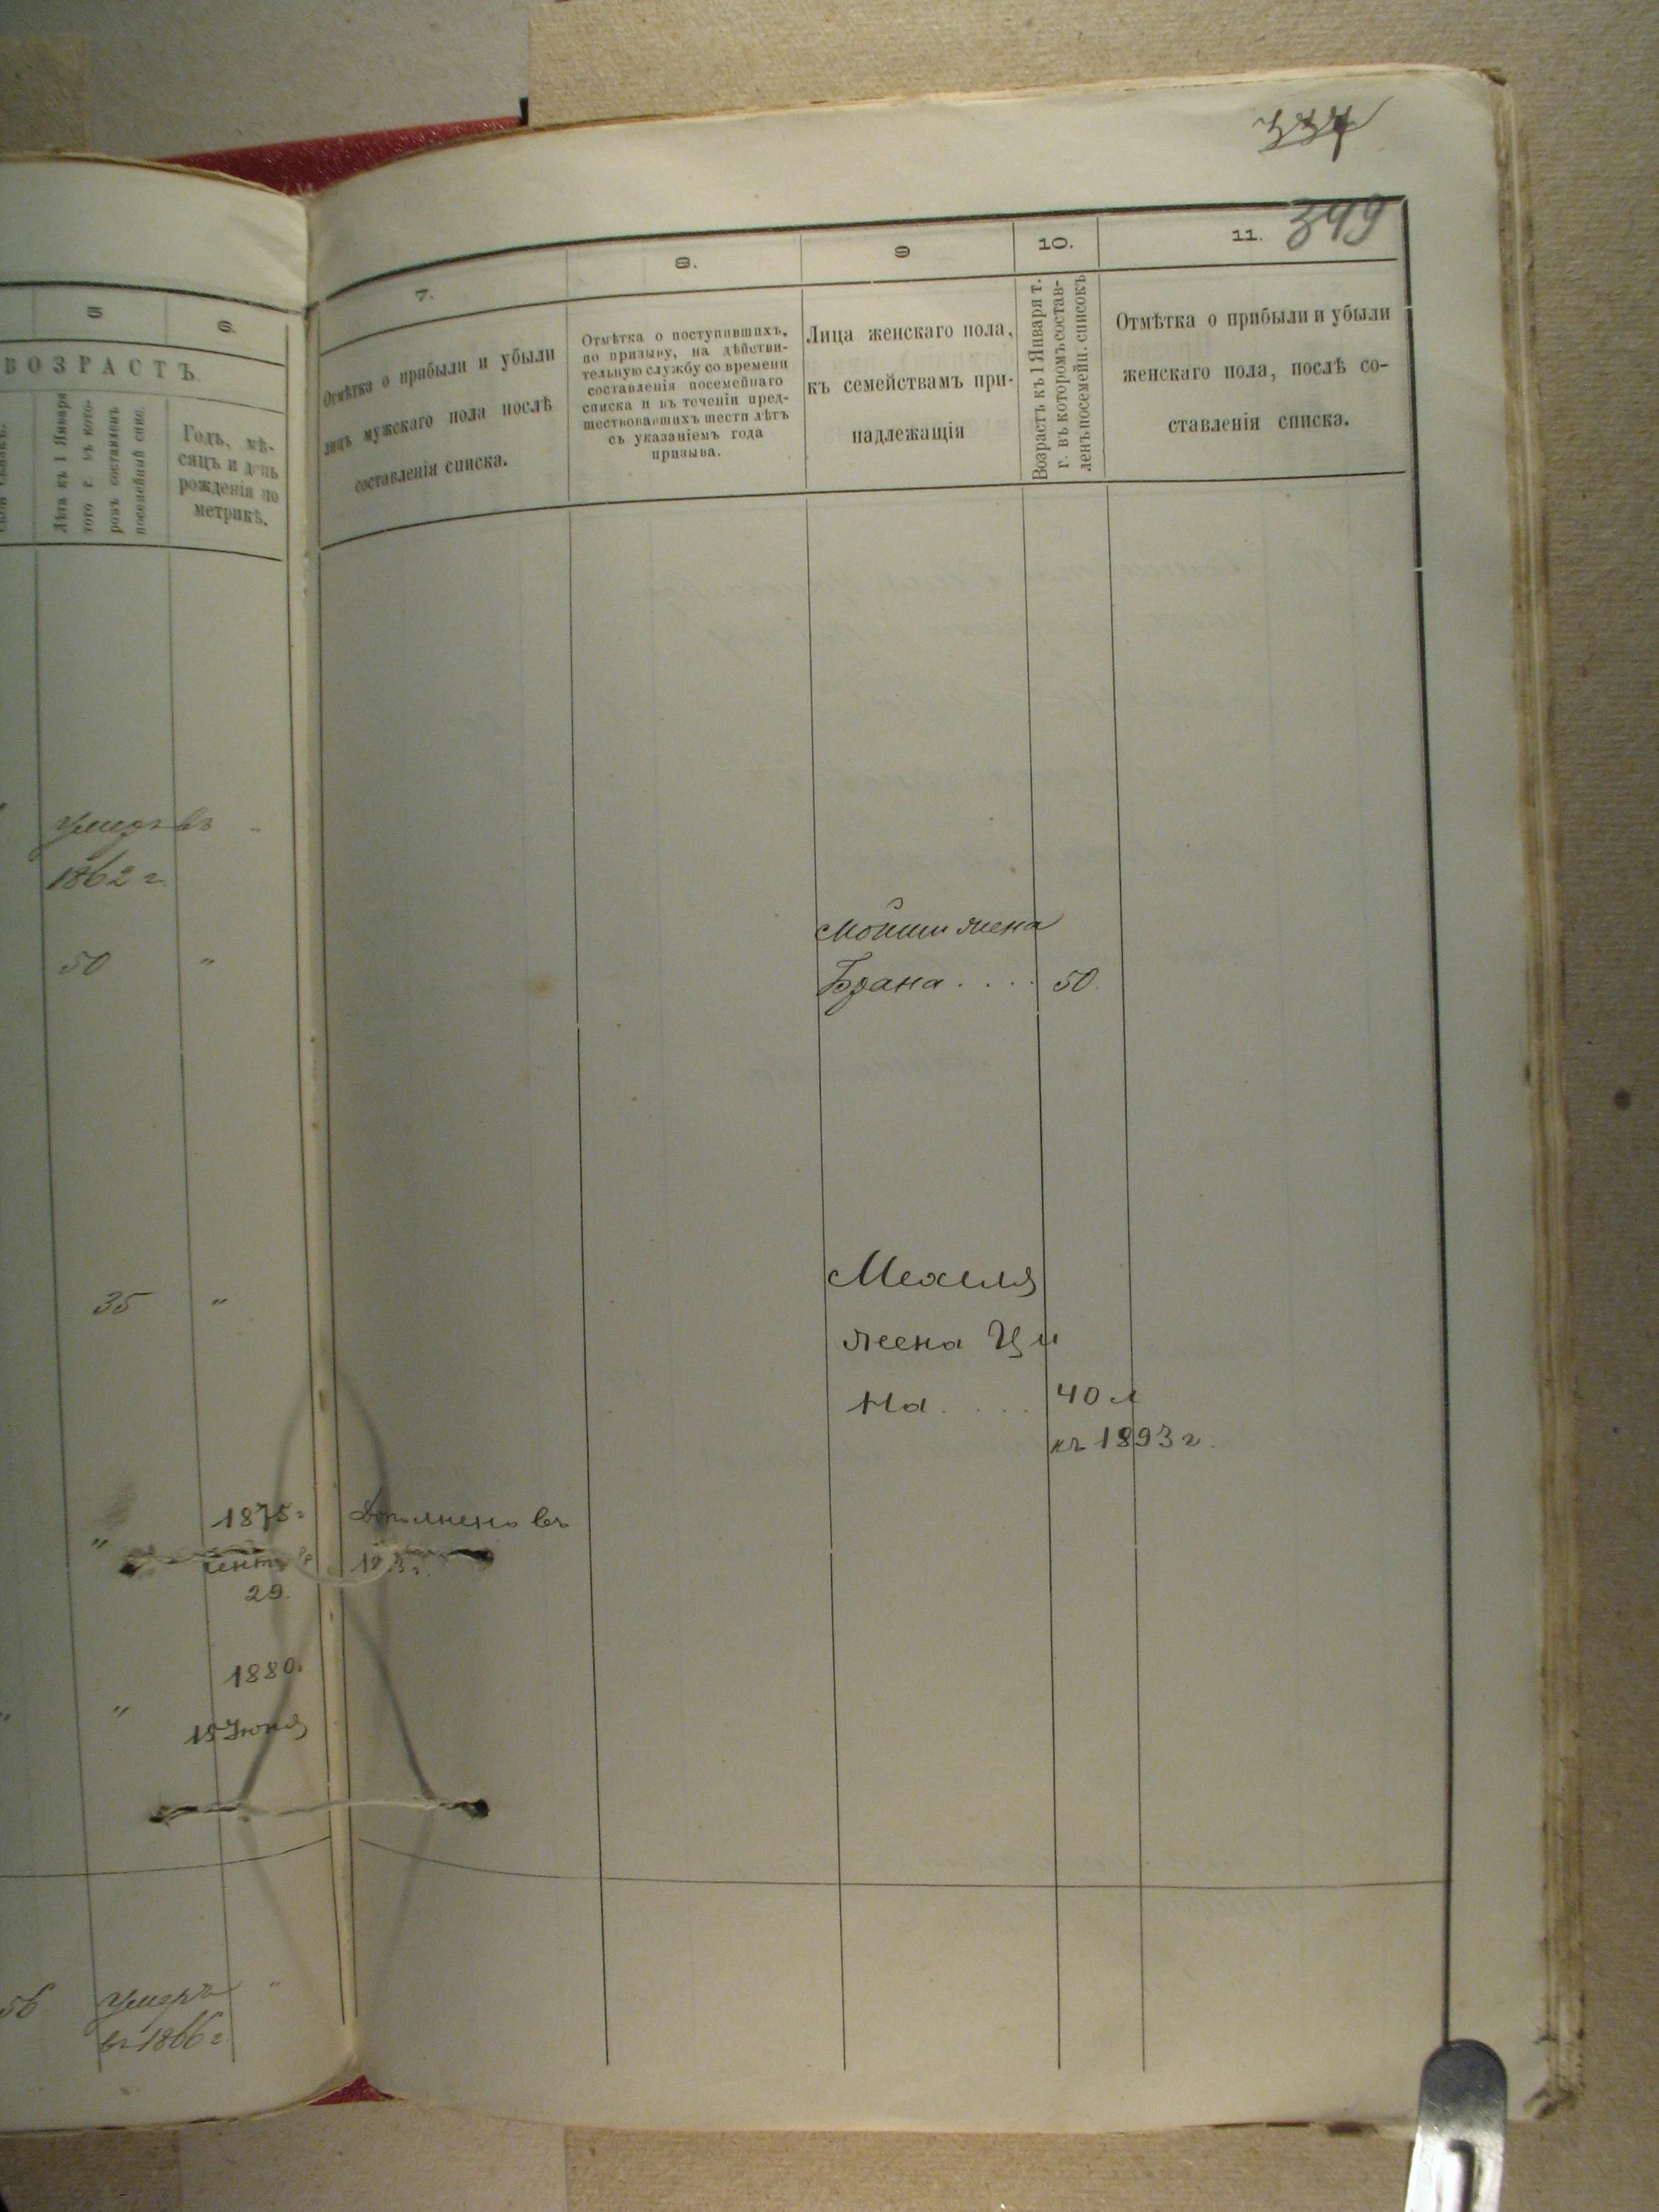 337
349
5
6.
ВОЗРАСТЪ.
Лѣта къ 1 Января
того г. въ кото-
ромъ составленъ
посемейный спис.
Годъ, мѣ-
сяцъ и день
рожденія по
метрикѣ.
умеръ въ "
1862 г.
50 "
35 "
" 1875 г
сент
29.
1880.
" " 15 Іюня
56 умеръ "
въ 1866 г
7.
8.
9
10.
11.
Отмѣтка о прибыли и убыли
лицъ мужскаго пола послѣ
составленія списка.
Отмѣтка о поступившихъ,
по призыву, на дѣйстви-
тельную службу со времени
составленія посемейнаго
списка и въ теченіи пред-
шествовавшихъ шести лѣтъ
съ указаніемъ года
призыва.
Лица женскаго пола,
къ семействамъ при-
надлежащія
Возрастъ къ 1 Января т.
г. въ которомъ состав-
ленъ посемейн. списокъ
Отмѣтка о прибыли и убыли
женскаго пола, послѣ со-
ставленія списка.
Мойши жена
Брана . . . . 50.
Мехеля
жена Ци
на . . . . 40 л
къ 1893 г.
Дополнено въ